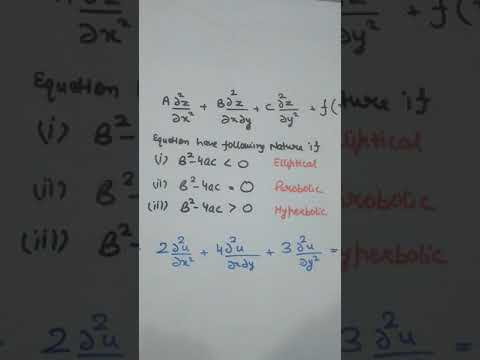 A ∂²z/∂x² + B ∂²z/∂x∂y + C ∂²z/∂y² + f(
Equation have following Nature if
(i) B²-4ac < 0 Elliptical
(ii) B²-4ac = 0 Parobolic
(iii) B²-4ac > 0 Hyperbolic
2 ∂²u/∂x² + 4 ∂²u/∂x∂y + 3 ∂²u/∂y² =